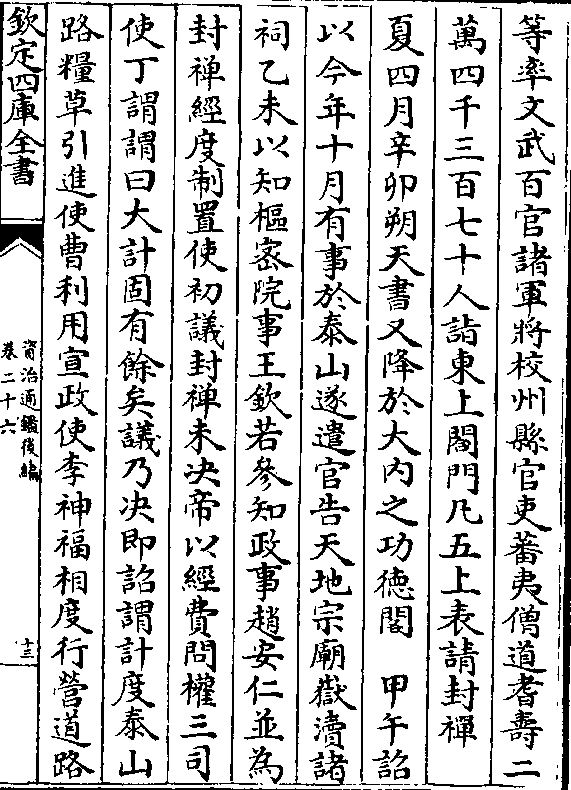 等率文武百官諸軍將校州縣官吏蕃夷僧道耆壽二
萬四千三百七十人詣東上閤門凡五上表請封禪
夏四月辛卯朔天書又降於大内之功徳閣　甲午詔
以今年十月有事於泰山遂遣官告天地宗廟嶽瀆諸
祠乙未以知樞宻院事王欽若參知政事趙安仁並為
封禪經度制置使初議封禪未決帝以經費問權三司
使丁謂謂曰大計固有餘矣議乃决即詔謂計度泰山
路糧草引進使曹利用宣政使李神福相度行營道路
欽定四庫全書
資治通鑑後編
卷二十六
十三